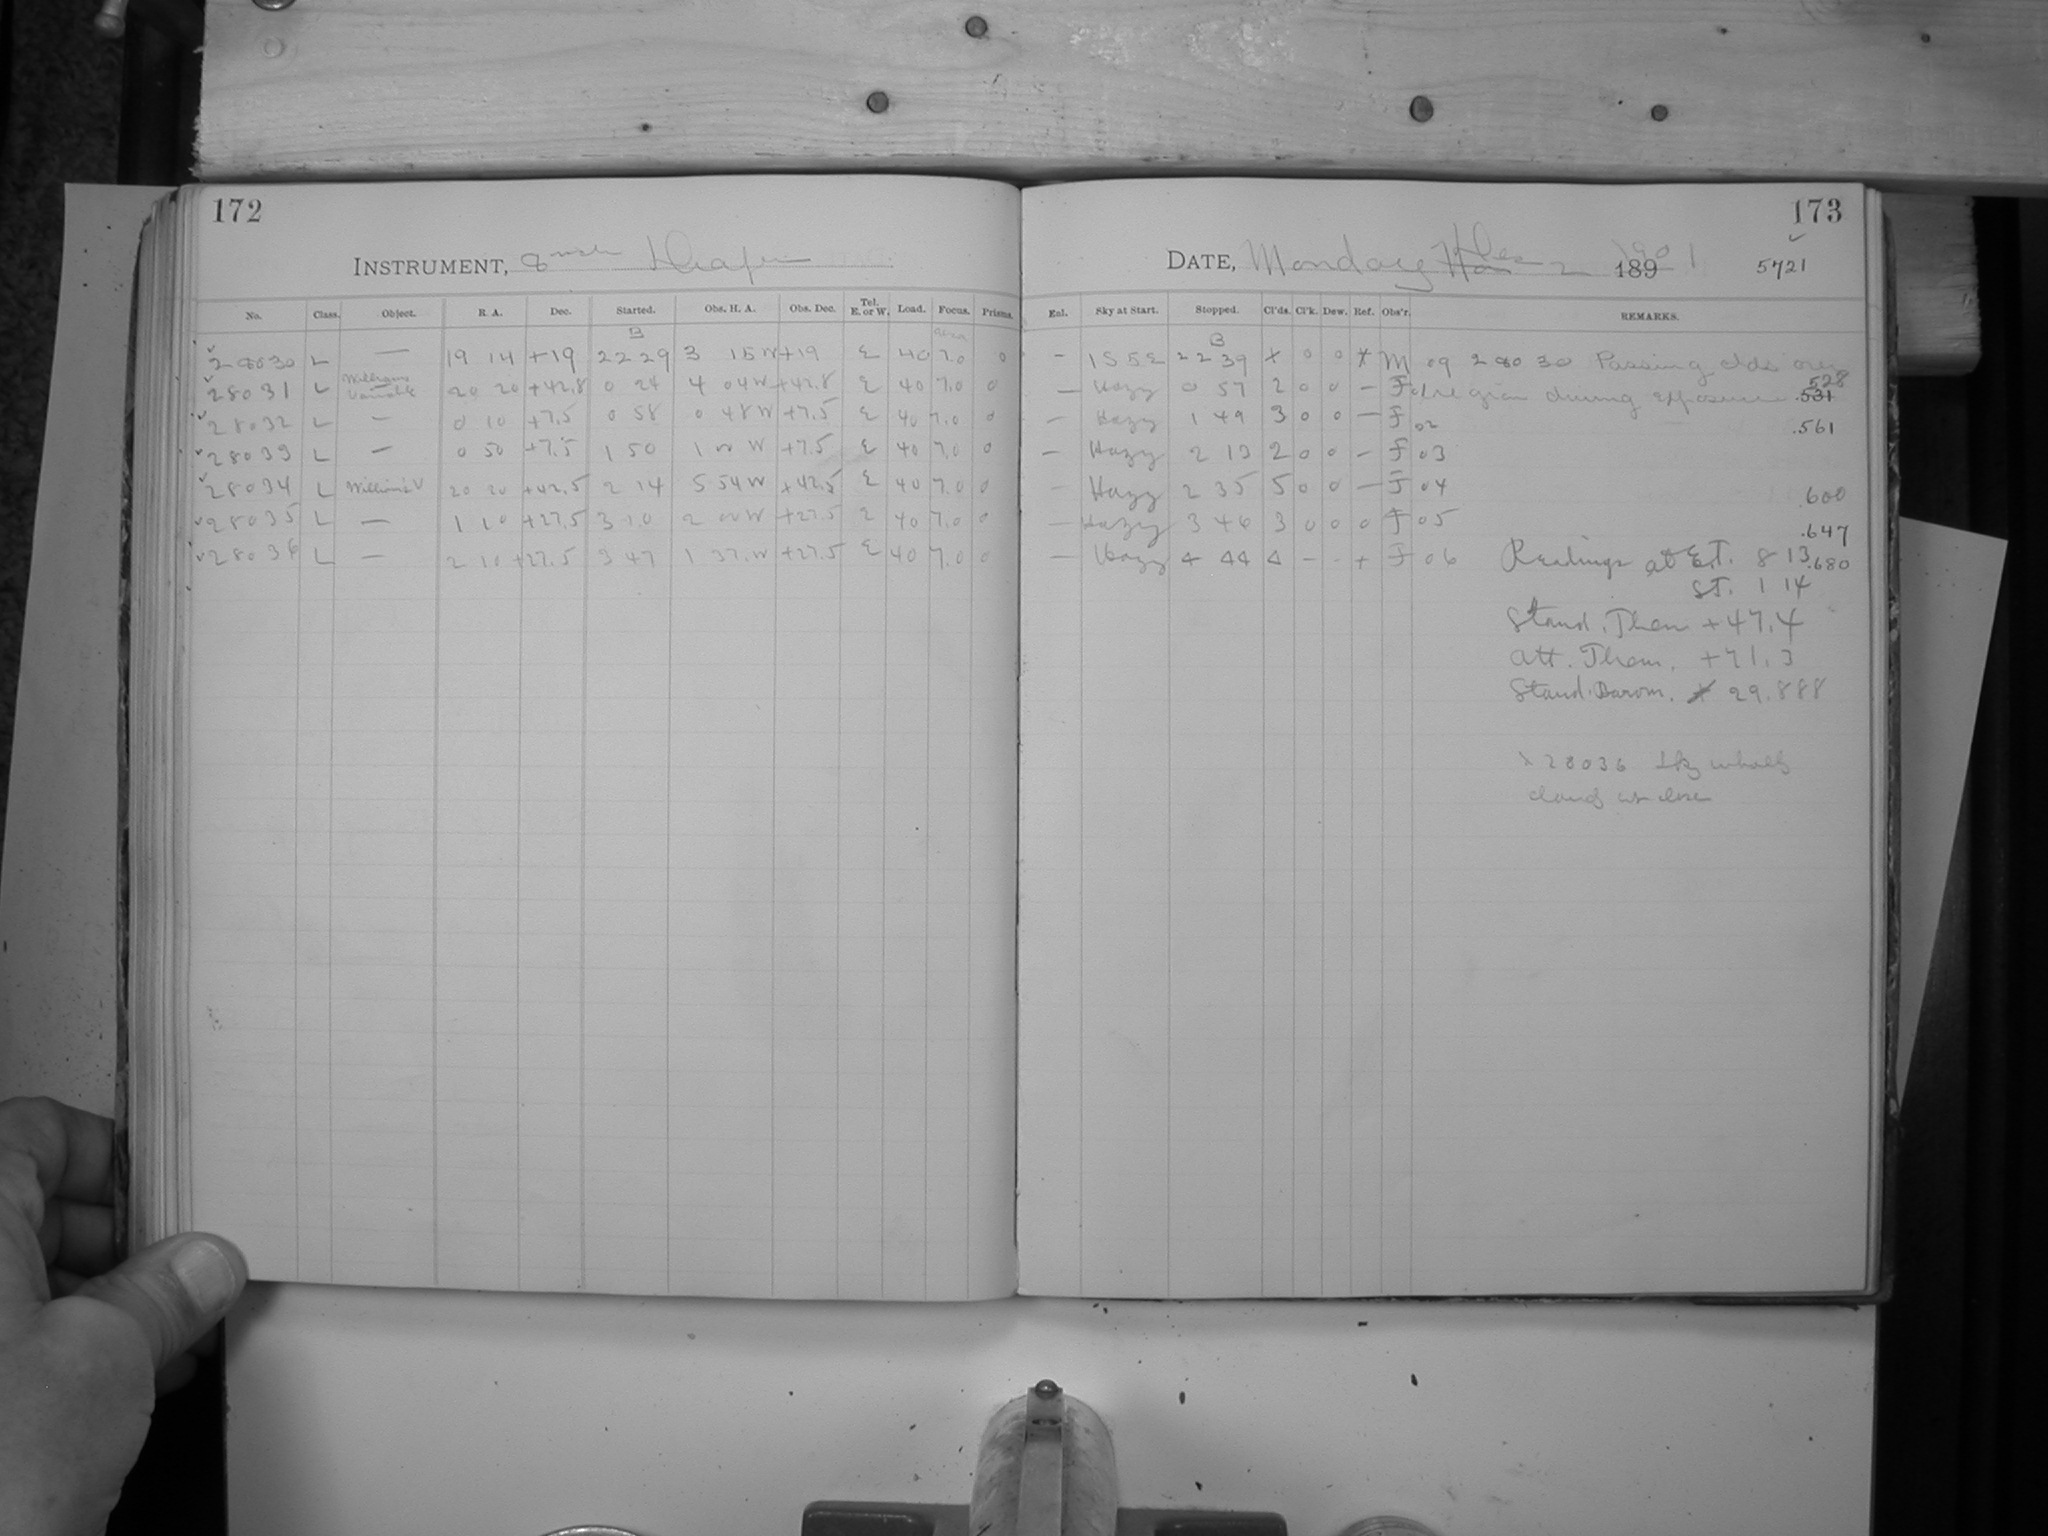 172
INSTRUMENT, 8 inch Draper
No. Class. Object. R. A. Dec. Started. Obs. H. A. Obs. Dec. Tel. E. or W. Load. Focus. Prisms.
B
28030 L — 19 14 +19 22 29 3 15 W +19 E 40 7.0 0
28031 L Williams Variable 20 20 +42.8 0 24 4 04 W +42.8 E 40 7.0 0
28032 L — 0 10 +7.5 0 58 0 48 W +7.5 E 40 7.0 0
28033 L — 0 50 +7.5 1 50 1 00 W +7.5 E 40 7.0 0
28034 L William's V 20 20 +42.5 2 14 5 54 W +42.5 E 40 7.0 0
28035 L — 1 10 +27.5 3 10 2 00 W +27.5 E 40 7.0 0
28036 L — 2 10 +27.5 3 47 1 37 W +27.5 E 40 7.0 0
173
DATE, Monday Dec 2 1901
189
5721
Enl. Sky at Start. Stopped. Cl'ds. Cl'k. Dew. Ref. Obs'r. REMARKS.
B
— 1 S 5 E 22 39 x 0 0 * M 09 28030 Passing clds over
— Hazy 0 57 2 0 0 — F 01 region during exposure .528 .531
— Hazy 1 49 3 0 0 — F 02 .561
— Hazy 2 13 2 0 0 — F 03
— Hazy 2 35 5 0 0 — F 04 .600
— Hazy 3 46 3 0 0 0 F 05 .647
— Hazy 4 44 4 — - + F 06 Readings at E.T. 8 13 .680
S.T. 1 14
Stand. Ther +47.4
Att. Therm. +71.3
Stand. Barom. 29.888
x 28036 Sky wholly
cloudy at close